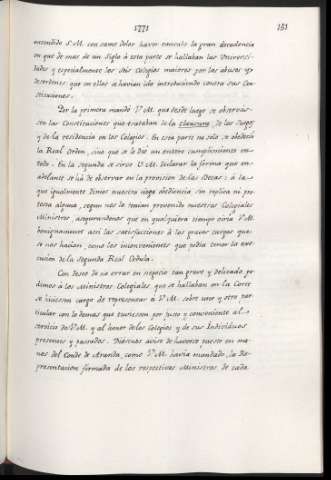 1771
181
entendido S. M. con sumo dolor haver venido la gran decadencia
en que de mas de un Siglo à esta parte se hallaban las Universi-
dades y especialmente los seis Colegios maiores por los abusos y
desordenes que en ellos se havian ido introduciendo contra sus Con-
stituciones.
Por la primera mandò V. M. que desde luego se observas-
sen las Constituciones que trataban de la clausura, de los Juegos
y de la residencia en los Colegios. En esta parte no solo se obedeciò
la Real Orden, sino que se le diò un entero cumplimiento en
todo. En la segunda se sirve V. M. declarar la forma que en
adelante se hà de observar en la provision de las Becas: à la
que igualmente dimos nuestra ciega obediencia sin replica ni pro-
testa alguna, segun nos lo tenian prevenido nuestros Colegiales
Ministros, asegurandonos que en qualquiera tiempo oiria V. M.
benignamente asi las satisfacciones à los graves cargos que
se nos hacian, como los inconvenientes que podia tener la exe-
cucion de la segunda Real Cedula.
Con deseo de no errar en negocio tan grave y delicado, pe-
dimos à los Ministros Colegiales que se hallaban en la Corte
se hiciesen cargo de representar à V. M. sobre uno y otro par-
ticular con lo demas que tuviessen por justo y conveniente al
servicio de V. M. y al honor de los Colegios y de sus Individuos
presentes y passados. Dieronos aviso de haverlo puesto en ma-
nos del Conde de Aranda, como V. M. havia mandado, la Re-
presentacion firmada de los respectivos Ministros de cada